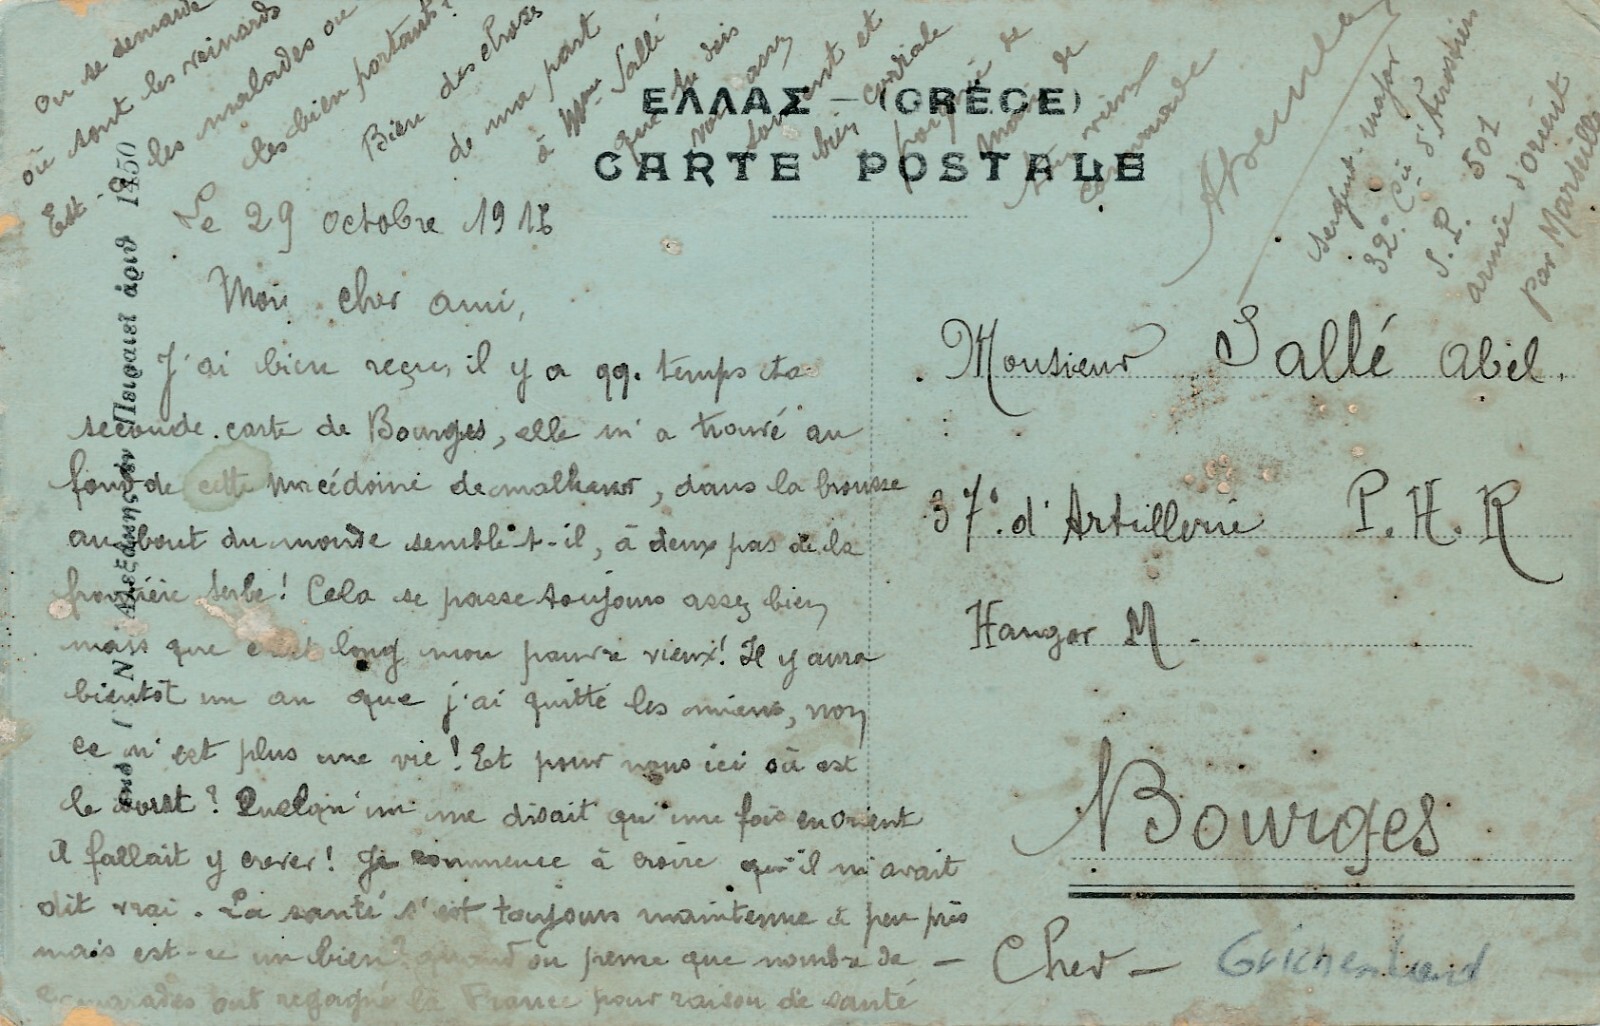 ΕΛΛΑΣ – (GRÈCE)
CARTE POSTALE
Le 29 octobre 1916
Mon cher ami,
J'ai bien reçu, il y a qq. temps ta
seconde carte de Bourges, elle m'a trouvé au
fond de cette Macédoine de malheur, dans la brousse
au bout du monde semble-t-il, à deux pas de la
frontière Serbe! Cela se passe toujours assez bien,
mais que c'est long mon pauvre vieux! Il y aura
bientôt un an que j'ai quitté les miens, non
ce n'est plus une vie! Et pour nous ici où est
le bout? Quelqu'un me disait qu'une fois en Orient
il fallait y crever! Je commence à croire qu'il m'avait
dit vrai. La santé s'est toujours maintenue à peu près
mais est-ce un bien? quand on pense que nombre de
camarades ont regagné la France pour raison de santé
On se demande
où sont les veinards
Est-ce les malades ou
les bien portants?
Bien des choses
de ma part
à Mme Sallé
que tu dois
voir assez
souvent et
bien cordiale
poignée de
main de
ton vieux
camarade
Sergent-major
32e Cie d'Aérostiers
S.P. 501
armée d'Orient
par Marseille
Monsieur Sallé Abel.
37e d'Artillerie P.H.R
Hangar M -
Bourges
- Cher -
Πειραιεῖ ἀριθ 1450